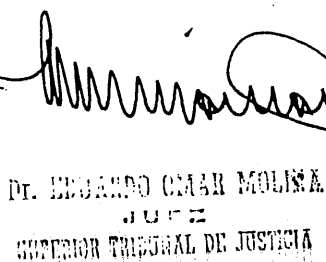 Dr. EDUARDO OMAR MOLINA
JUEZ
SUPERIOR TRIBUNAL DE JUSTICIA